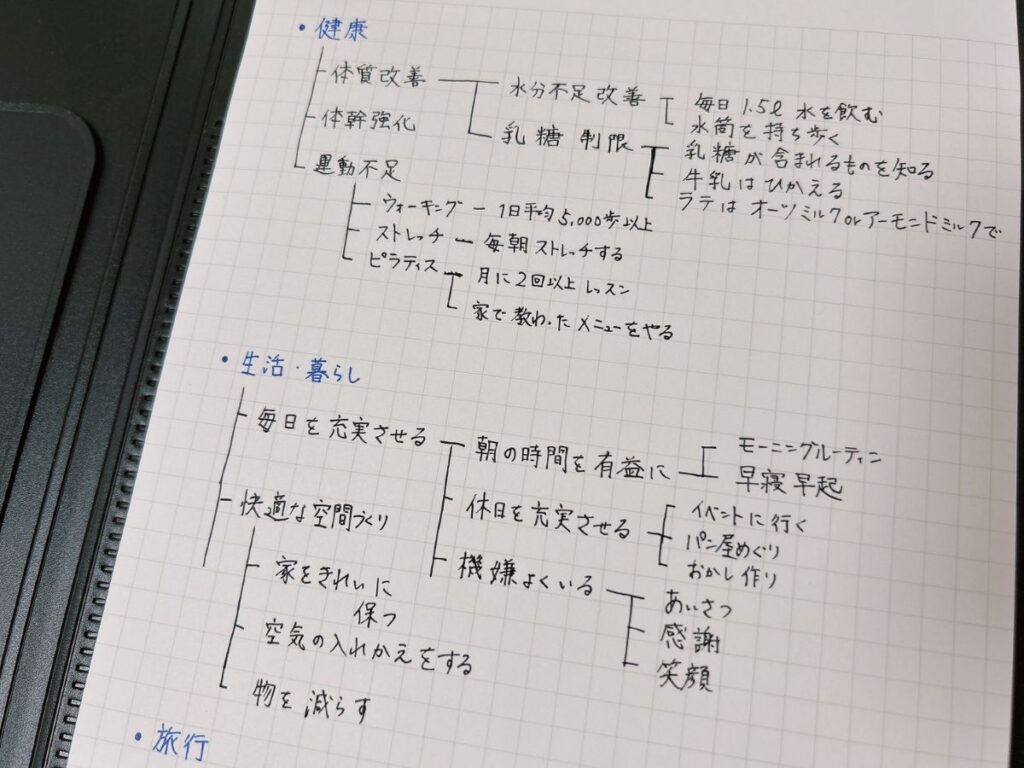 ・健康
体質改善
水分不足改善
毎日 1.5ℓ 水を飲む
水筒を持ち歩く
乳糖 制限
乳糖が含まれるものを知る
牛乳はひかえる
ラテは オーツミルクorアーモンドミルクで
体幹強化
運動不足
ウォーキング ー 1日平均5,000歩以上
ストレッチ ー 毎朝ストレッチする
ピラティス
月に2回以上 レッスン
家で教わったメニューをやる
・生活・暮らし
毎日を充実させる
朝の時間を有益に
モーニングルーティン
早寝早起
休日を充実させる
イベントに行く
パン屋めぐり
おかし作り
機嫌よくいる
あいさつ
感謝
笑顔
快適な空間づくり
家をきれいに
保つ
空気の入れかえをする
物を減らす
・旅行